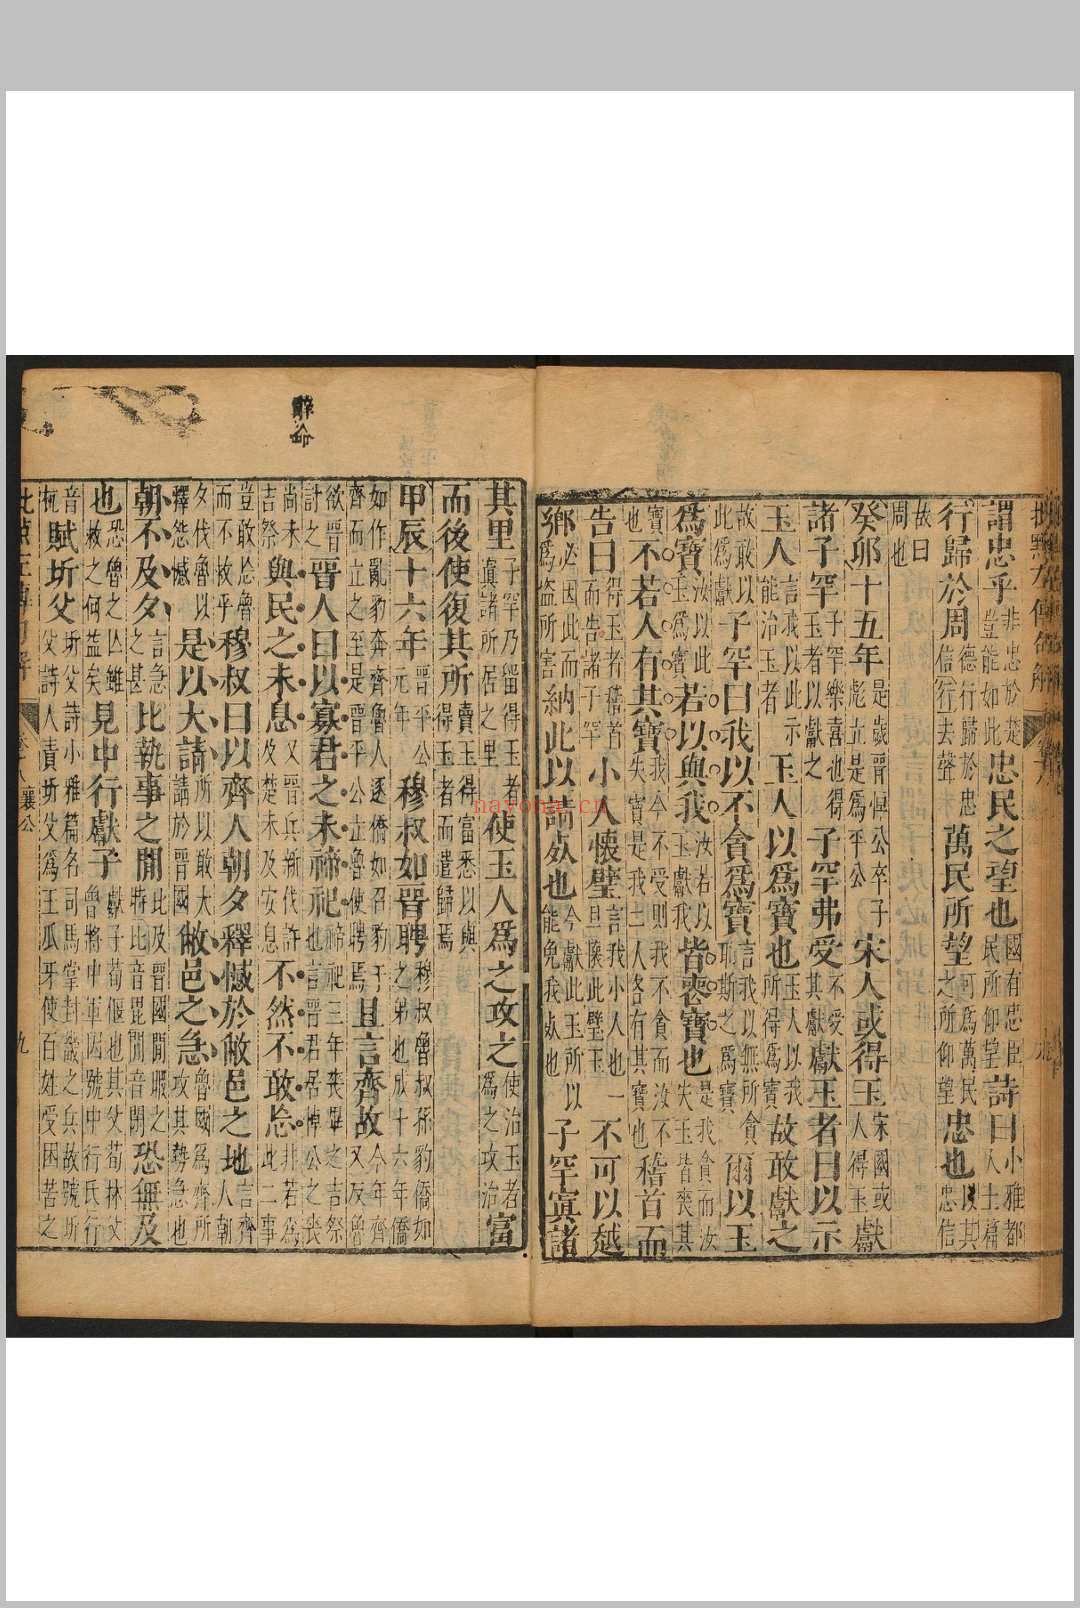 謂忠乎非忠於楚豈能如此忠民之望也國有忠臣民所仰望詩曰小雅都人士篇
行歸於周德行歸於忠信行去聲萬民所望可爲萬民之所仰望忠也以其忠信
故曰周也
癸卯十五年是歲晉悼公卒子彪立是爲平公宋人或得玉宋國或人得玉獻
諸子罕子罕樂喜也得玉者以獻之子罕弗受不受其獻獻玉者曰以示
玉人言我以此示能治玉者玉人以爲寶也玉人以我所得爲寶故敢獻之
故敢以此爲獻子罕曰我以不貪爲寶言我以無所貪耶斯之爲寶爾以玉
爲寶汝以此玉爲寶若以與我汝若以玉獻我皆喪寶也是我貪而汝失玉皆喪其
寶也不若人有其寶我今不受則我不貪而汝不失寶是我二人各有其寶也稽首而
告曰得玉者稽首而告諸子罕小人懷璧言我小人也一旦懷此璧玉不可以越
鄉必因此而爲盜所害納此以請死也今獻此玉所以能免我死也子罕寘諸
其里子罕乃留得玉者寘諸所居之里使玉人爲之攻之使治玉者爲之攻治富
而後使復其所賣玉得富悉以與得玉者而遣歸焉
甲辰十六年晉平公元年穆叔如晉聘穆叔魯叔孫豹僑如之弟也成十六年僑
如作亂豹奔齊魯人逐僑如召豹于齊而立之至是晉平公立魯使聘焉且言齊故今年齊又反魯
欲晉計之晉人曰以寡君之未禘祀禘祀三年喪畢之吉祭也言晉君居悼公之喪
尚未吉祭與民之未息又晉兵新伐許及楚未及安息不然不敢忘非若爲此二事
豈敢忘魯而不救乎穆叔曰以齊人朝夕釋憾於敝邑之地言齊人朝
夕伐魯以釋怨憾是以大請所以敢大請於晉國敝邑之急魯國爲齊所攻其勢急也
朝不及夕言急之甚比執事之閒此及晉國閒暇之時比音毘閒音閑恐無及
也恐魯之亾雖救之何益矣見中行獻子獻子荀偃也其父荀林父魯將中軍因號中行氏行
音杭賦圻父圻父詩小雅篇名司馬掌封畿之兵故號圻父詩人責圻父爲王爪牙使百姓受困苦之
辭命
襄公
九
nayona.cn